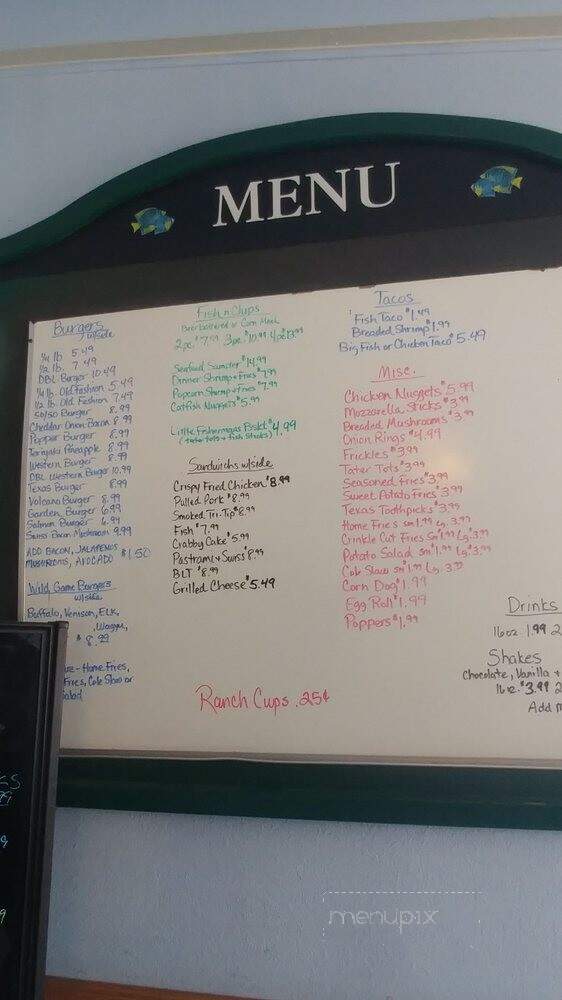 MENU
Burgers
w/side
1/4 lb. 5.49
1/2 lb. 7.49
DBL Burger 10.49
1/4 lb. Old Fashion 5.49
1/2 lb. Old Fashion 7.49
50/50 Burger 8.99
Cheddar Onion Bacon 8.99
Popper Burger 8.99
Teryaki Pineapple 8.99
Western Burger 8.99
DBL Western Burger 10.99
Texas Burger 8.99
Volcano Burger 8.99
Garden Burger 6.99
Salmon Burger 6.99
Swiss Bacon Mushroom 9.99
ADD BACON, JALAPENOS
MUSHROOMS, AVOCADO $1.50
Wild Game Burgers
w/side
Buffalo, Venison, ELK,
, Wagyu,
$8.99
- Home Fries,
Fries, Cole Slaw or
Salad
Fish n Chips
Beer battered or Corn Meal
2pc. $7.99 3pc. $10.99 4pc 13.99
Seafood Sampler $14.99
Dinner Shrimp & Fries $9.99
Popcorn Shrimp & Fries $7.99
Catfish Nuggets $5.99
Little Fishermans Bskt $4.99
(tater tots & fish sticks)
Sandwichs w/side
Crispy Fried Chicken $8.99
Pulled Pork $8.99
Smoked Tri-Tip $8.99
Fish $7.99
Crabby Cake $5.99
Pastrami & Swiss $8.99
BLT $8.99
Grilled Cheese $5.49
Ranch Cups .25¢
Tacos
Fish Taco $1.49
Breaded Shrimp $1.99
Big Fish or Chicken Taco $5.49
Misc.
Chicken Nuggets $5.99
Mozzarella Sticks $3.99
Breaded Mushrooms $3.99
Onion Rings $4.99
Frickles $3.99
Tater Tots $3.99
Seasoned Fries $3.99
Sweet Potato Fries $3.99
Texas Toothpicks $3.99
Home Fries sm 1.99 Lg. 3.99
Crinkle Cut Fries sm $1.99 Lg. $3.99
Potato Salad sm $1.99 Lg $3.99
Cole Slaw sm $1.99 Lg. 3.99
Corn Dog $1.99
Egg Roll $1.99
Poppers $1.99
Drinks
16oz 1.99 2
Shakes
Chocolate, Vanilla +
16oz. $3.99 2
Add
menupix